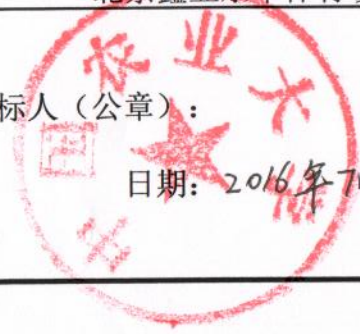 标人（公章）：
日期：2016年7
中国农业大学